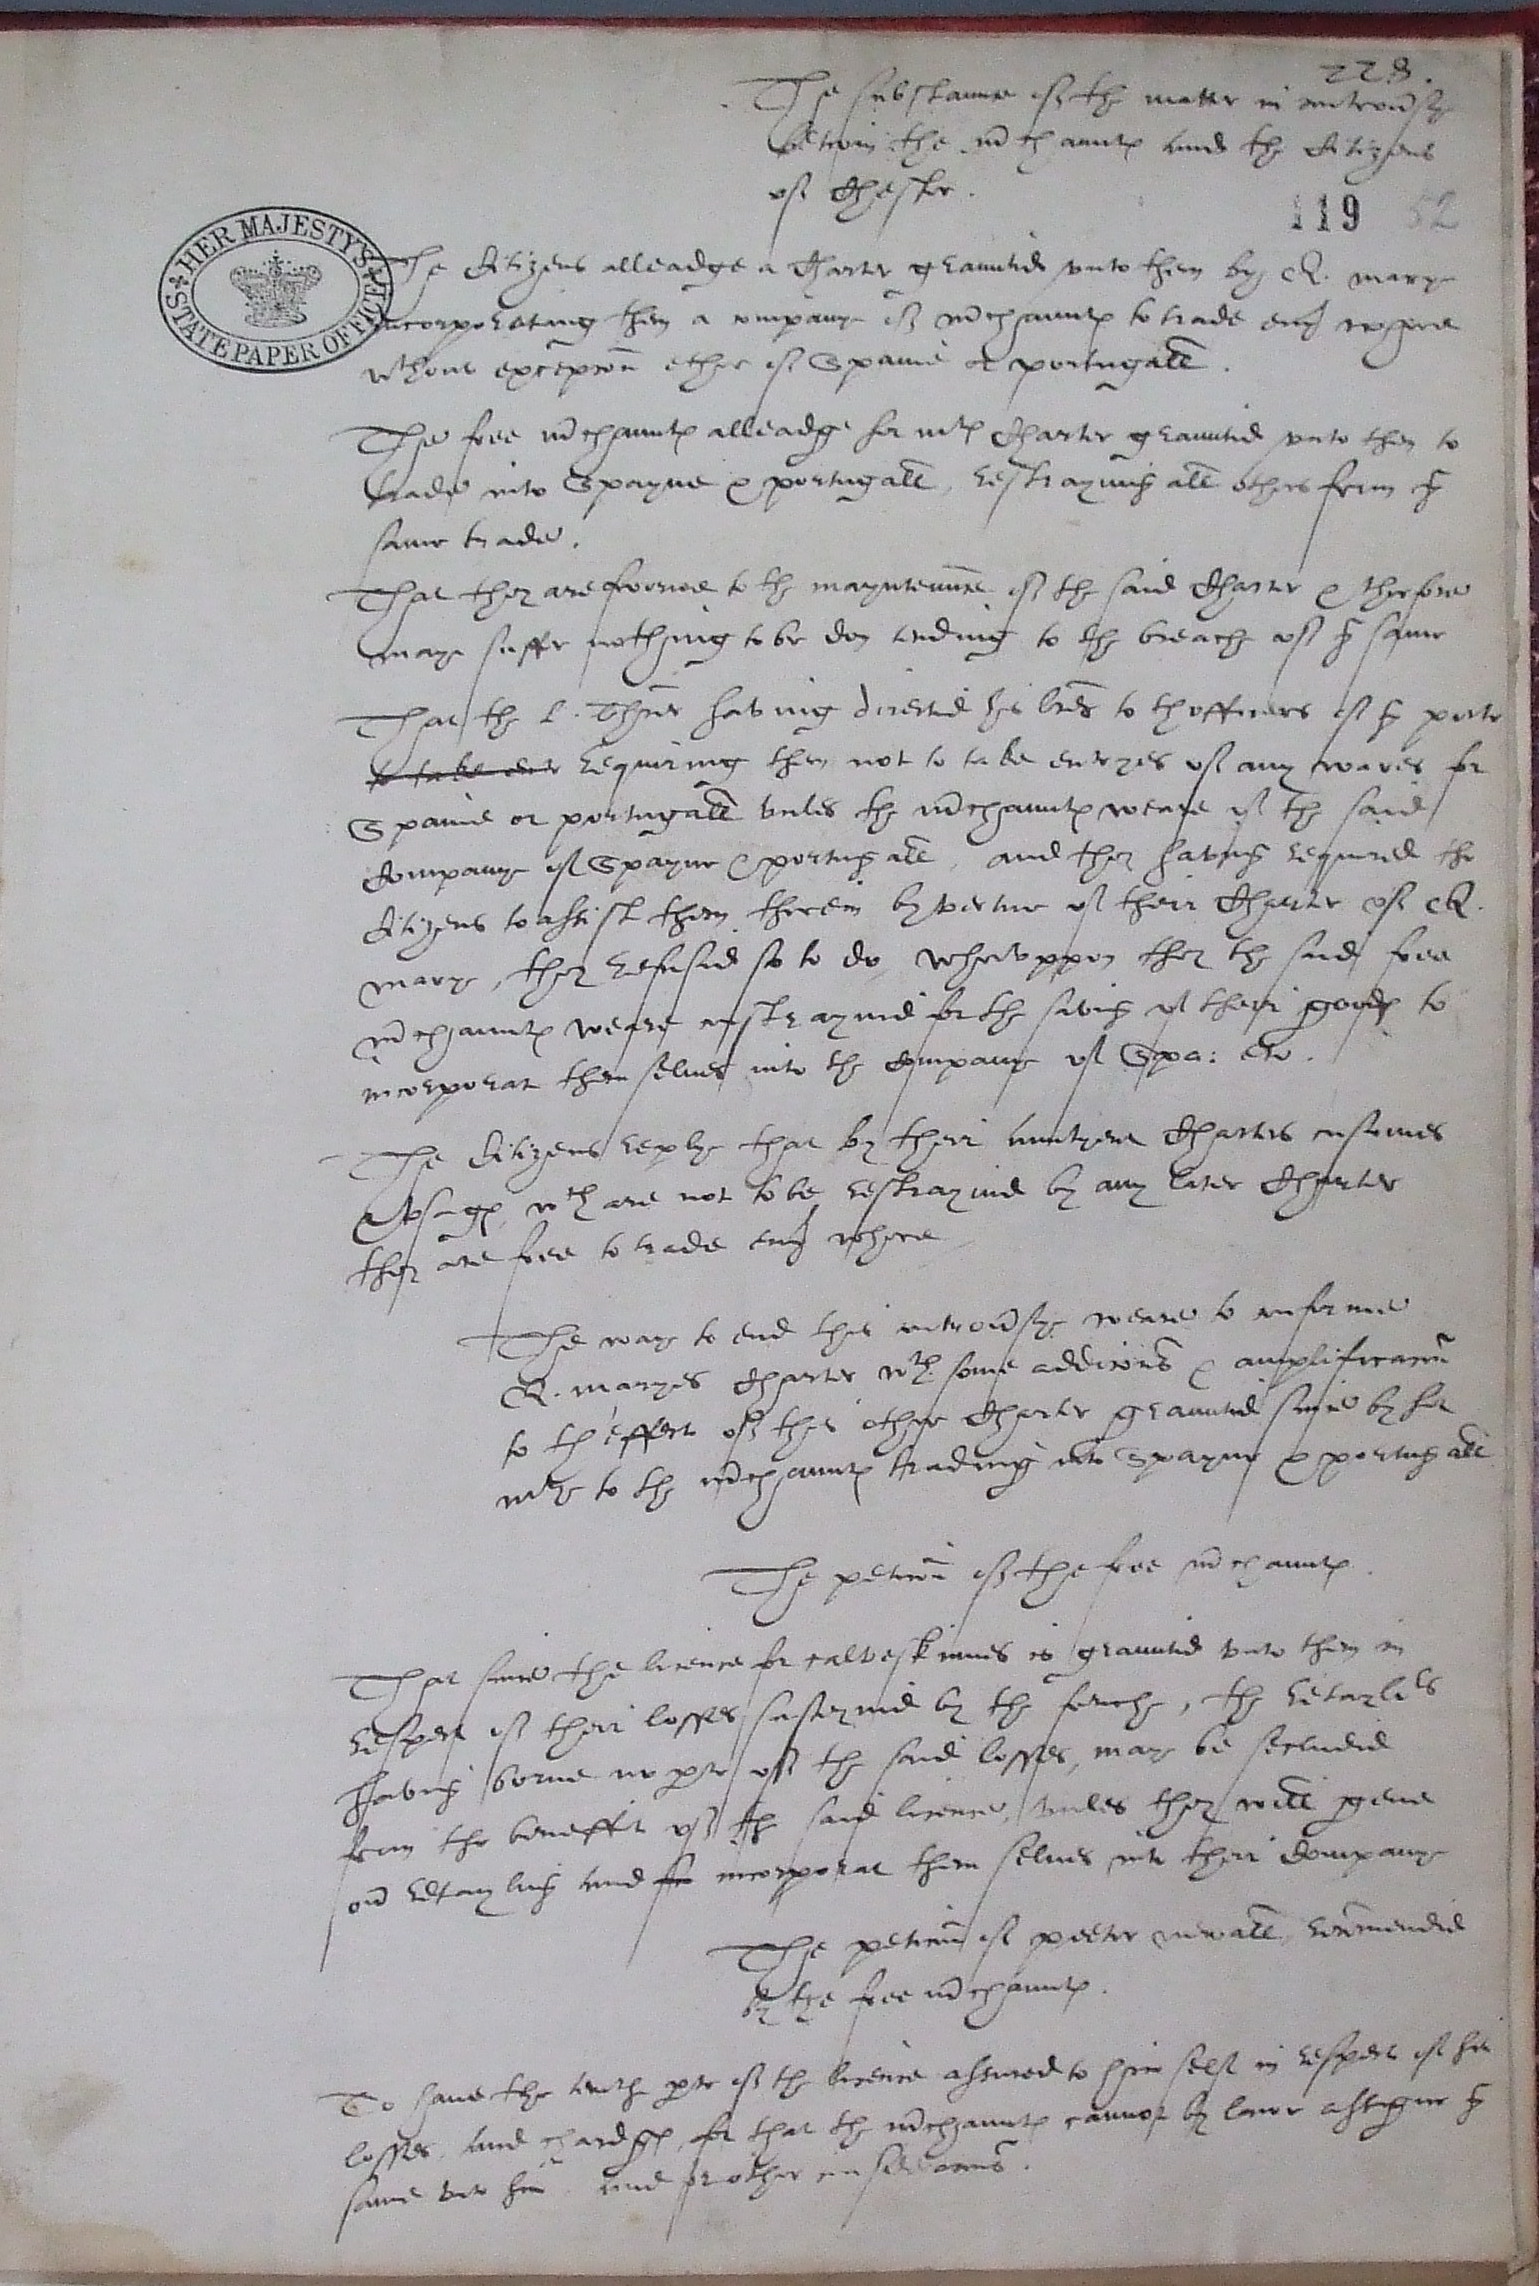 228.
The substance of the matter in controv̄sye
betwin the m̄chauntꝭ and the Citizens
of Chester.
119 52
HER MAJESTY'S STATE PAPER OFFICE
The Citizens alleadge a Charter grauntid vnto them by Q. Marye
incorporating them a companye of m̄chauntꝭ to trade eūy where
wthout excepcōn ether of Spaine or portugall.
The free m̄chauntꝭ alleadge her mtꝭ Charter grauntid vnto them to
trade into Spayne & portugall, restrayning all others from ye
same trade.
That they are sworne to the mayntenn̄ce of the said Charter & therfore
maye suffer nothing to be don tending to the breache of ye same
That the L. Thr̄er having directid his lr̄es to thofficers of ye porte
to take entr requiring them not to take entryes of any wares for
Spaine or portugall vnles the m̄chauntꝭ weare of the said
Companye of Spayne & portugall, and they having required the
Citizens to assist them therein by vertue of their Charter of Q.
Marye, they refusid so to do, whervppon they the said free
m̄chauntꝭ weare constraynid for the saving of their goodꝭ to
incorporat them selues into the Companye of Spa: etc.
The Citizens replye that by their auntyent Charters customes
& vsagꝭ, wch are not to be restraynid by any later Charter
they are free to trade eūy where
The waye to end this controv̄sye weare to confirme
Q. Maryes Charter wth some addicōns & amplificacōn
to theffect of this other Charter grauntid since by her
mtye to the m̄chauntꝭ trading into Spayne & portugall
The peticōn of the free m̄chauntꝭ.
That since the licence for calveskinnes is grauntid vnto them in
respect of their losses susteynid by the frenche, the retaylers
having borne no parte of the said losses, may be secludid
from the beneffit of the said licence, vnles they will geue
ov̄ retayling and so incorporat them selues into their Companye
The peticōn of peeter newall, com̄mendid
by the free m̄chauntꝭ.
To haue the tenthe parte of the licence assured to him self in respect of his
losses and chardgꝭ, for that the m̄chauntꝭ cannot by lawe assigne ye
same vnto him and for other consideracōns.